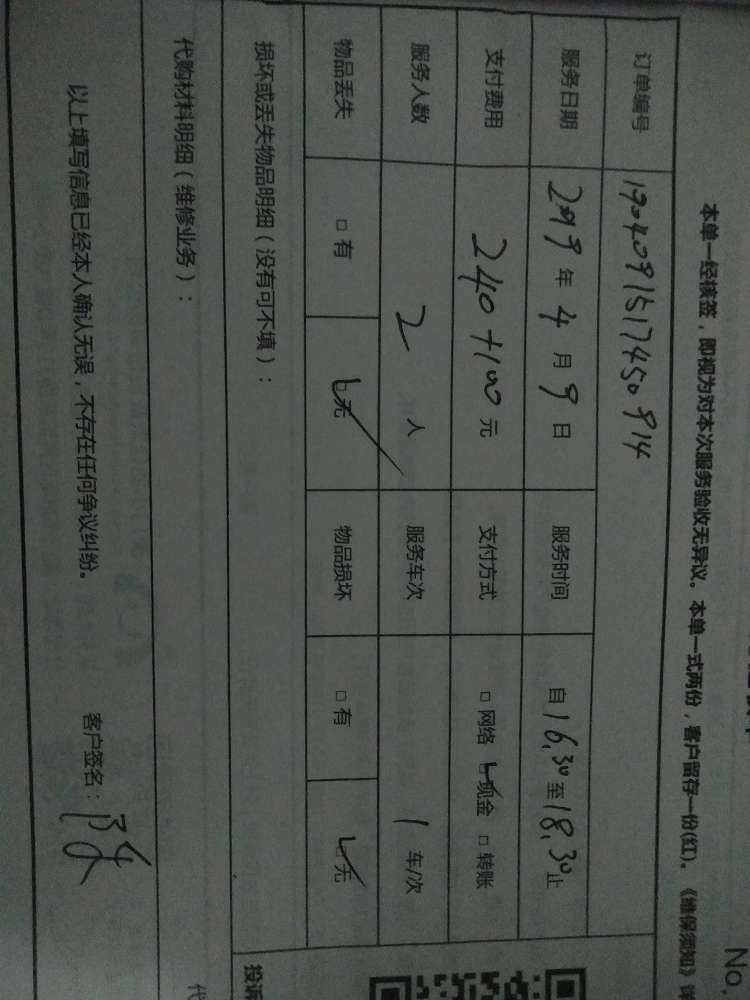 No.
本单一经核签，即视为对本次服务验收无异议。本单一式两份，客户留存一份(红)。《维保须知》
订单编号 1904091517450914
服务日期 2019年4月9日 服务时间 自16.30至18.30止
支付费用 240+100元 支付方式 □网络 ☑现金 □转账
服务人数 2人 服务车次 1车/次
物品丢失 □有 ☑无 物品损坏 □有 ☑无
损坏或丢失物品明细（没有可不填）：
投诉
代购材料明细（维修业务）：
代
以上填写信息已经本人确认无误，不存在任何争议纠纷。 客户签名：